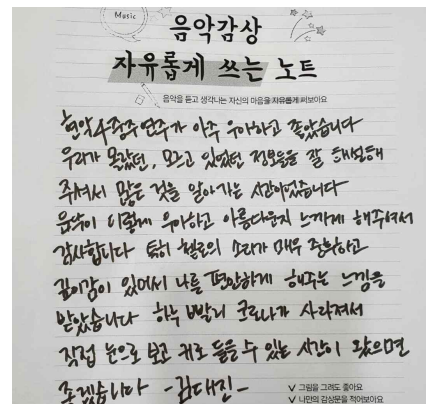 Music
음악감상
자유롭게 쓰는 노트
음악을 듣고 생각나는 자신의 마음을 자유롭게 펴보아요
현악4중주 연주가 아주 우아하고 좋았습니다
우리가 몰랐던, 모르고 있었던 정보들을 잘 해설해
주셔서 많은 것을 알아가는 시간이었습니다
음악이 이렇게 우아하고 아름다운지 느끼게 해주셔서
감사합니다 특히 첼로의 소리가 매우 온화하고
깊이감이 있어서 나를 편안하게 해주는 느낌을
받았습니다 하루 빨리 코로나가 사라져서
직접 눈으로 보고 귀로 들을 수 있는 시간이 왔으면
좋겠습니다 -김대진-
∨ 그림을 그려도 좋아요
∨ 나만의 감상문을 적어보아요